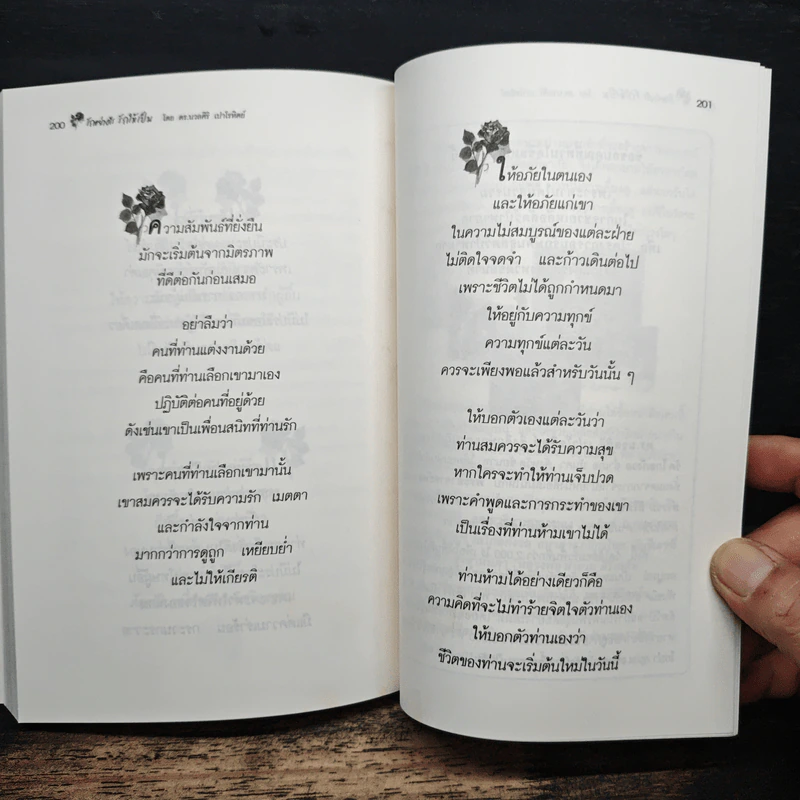 200 รักพ่อสิ รักให้เป็น โดย ดร.นวลศิริ เปาโรหิตย์
ความสัมพันธ์ที่ยั่งยืน
มักจะเริ่มต้นจากมิตรภาพ
ที่ดีต่อกันก่อนเสมอ
อย่าลืมว่า
คนที่ท่านแต่งงานด้วย
คือคนที่ท่านเลือกเขามาเอง
ปฏิบัติต่อคนที่อยู่ด้วย
ดังเช่นเขาเป็นเพื่อนสนิทที่ท่านรัก
เพราะคนที่ท่านเลือกเขามานั้น
เขาสมควรจะได้รับความรัก เมตตา
และกำลังใจจากท่าน
มากกว่าการดูถูก เหยียบย่ำ
และไม่ให้เกียรติ
201
ให้อภัยในตนเอง
และให้อภัยแก่เขา
ในความไม่สมบูรณ์ของแต่ละฝ่าย
ไม่ติดใจจดจำ และก้าวเดินต่อไป
เพราะชีวิตไม่ได้ถูกกำหนดมา
ให้อยู่กับความทุกข์
ความทุกข์แต่ละวัน
ควรจะเพียงพอแล้วสำหรับวันนั้น ๆ
ให้บอกตัวเองแต่ละวันว่า
ท่านสมควรจะได้รับความสุข
หากใครจะทำให้ท่านเจ็บปวด
เพราะคำพูดและการกระทำของเขา
เป็นเรื่องที่ท่านห้ามเขาไม่ได้
ท่านห้ามได้อย่างเดียวก็คือ
ความคิดที่จะไม่ทำร้ายจิตใจตัวท่านเอง
ให้บอกตัวท่านเองว่า
ชีวิตของท่านจะเริ่มต้นใหม่ในวันนี้